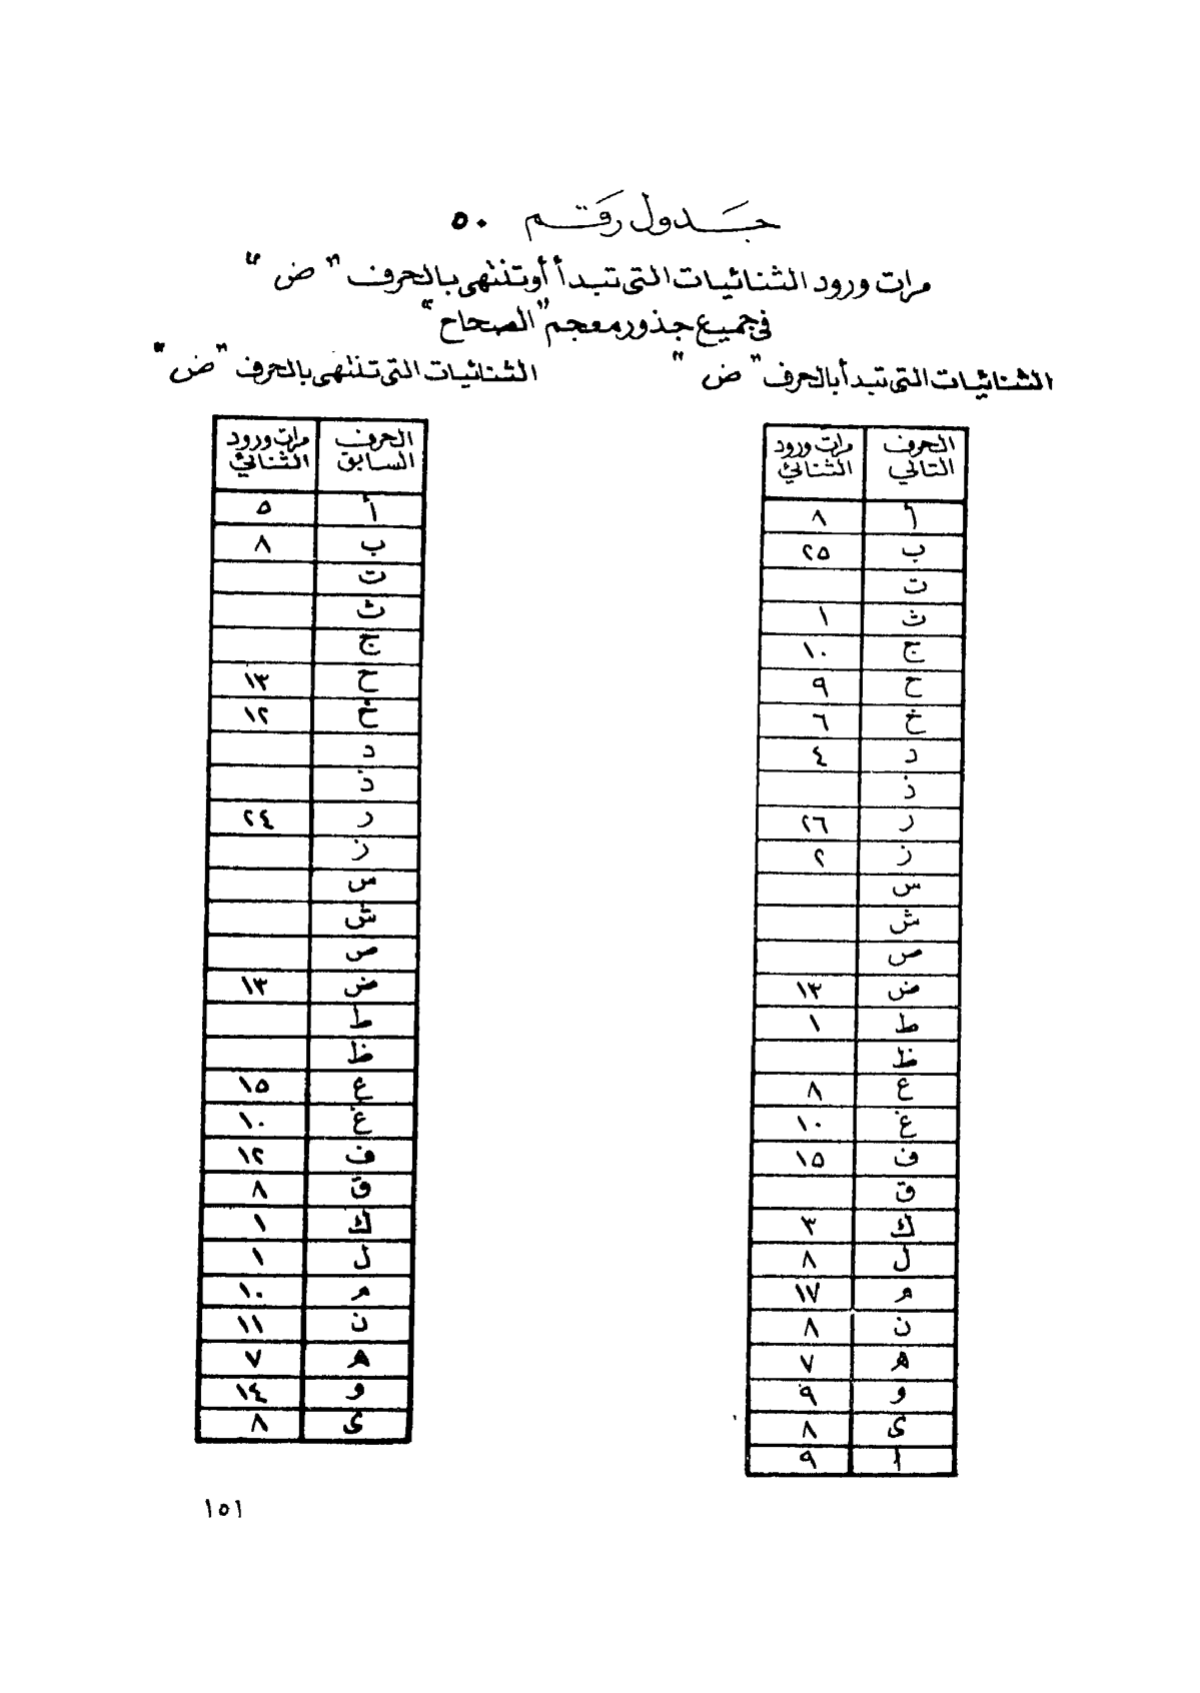 جدول رقم ٥٠
مرات ورود الثنائيات التى تبدأ أو تنتهى بالحرف "ض"
فى جميع جذور معجم "الصحاح"
الثنائيات التى تبدأ بالحرف "ض"
الحرف التالي مرات ورود الثنائي
أ ٨
ب ٢٥
ت
ث ١
ج ١٠
ح ٩
خ ٦
د ٤
ذ
ر ٢٦
ز ٢
س
ش
ص
ض ١٣
ط ١
ظ
ع ٨
غ ١٠
ف ١٥
ق
ك ٣
ل ٨
م ١٧
ن ٨
ه ٧
و ٩
ى ٨
ا ٩
الثنائيات التى تنتهى بالحرف "ض"
الحرف السابق مرات ورود الثنائي
أ ٥
ب ٨
ت
ث
ج
ح ١٣
خ ١٢
د
ذ
ر ٢٤
ز
س
ش
ص
ض ١٣
ط
ظ
ع ١٥
غ ١٠
ف ١٢
ق ٨
ك ١
ل ١
م ١٠
ن ١١
ه ٧
و ١٤
ى ٨
١٥١